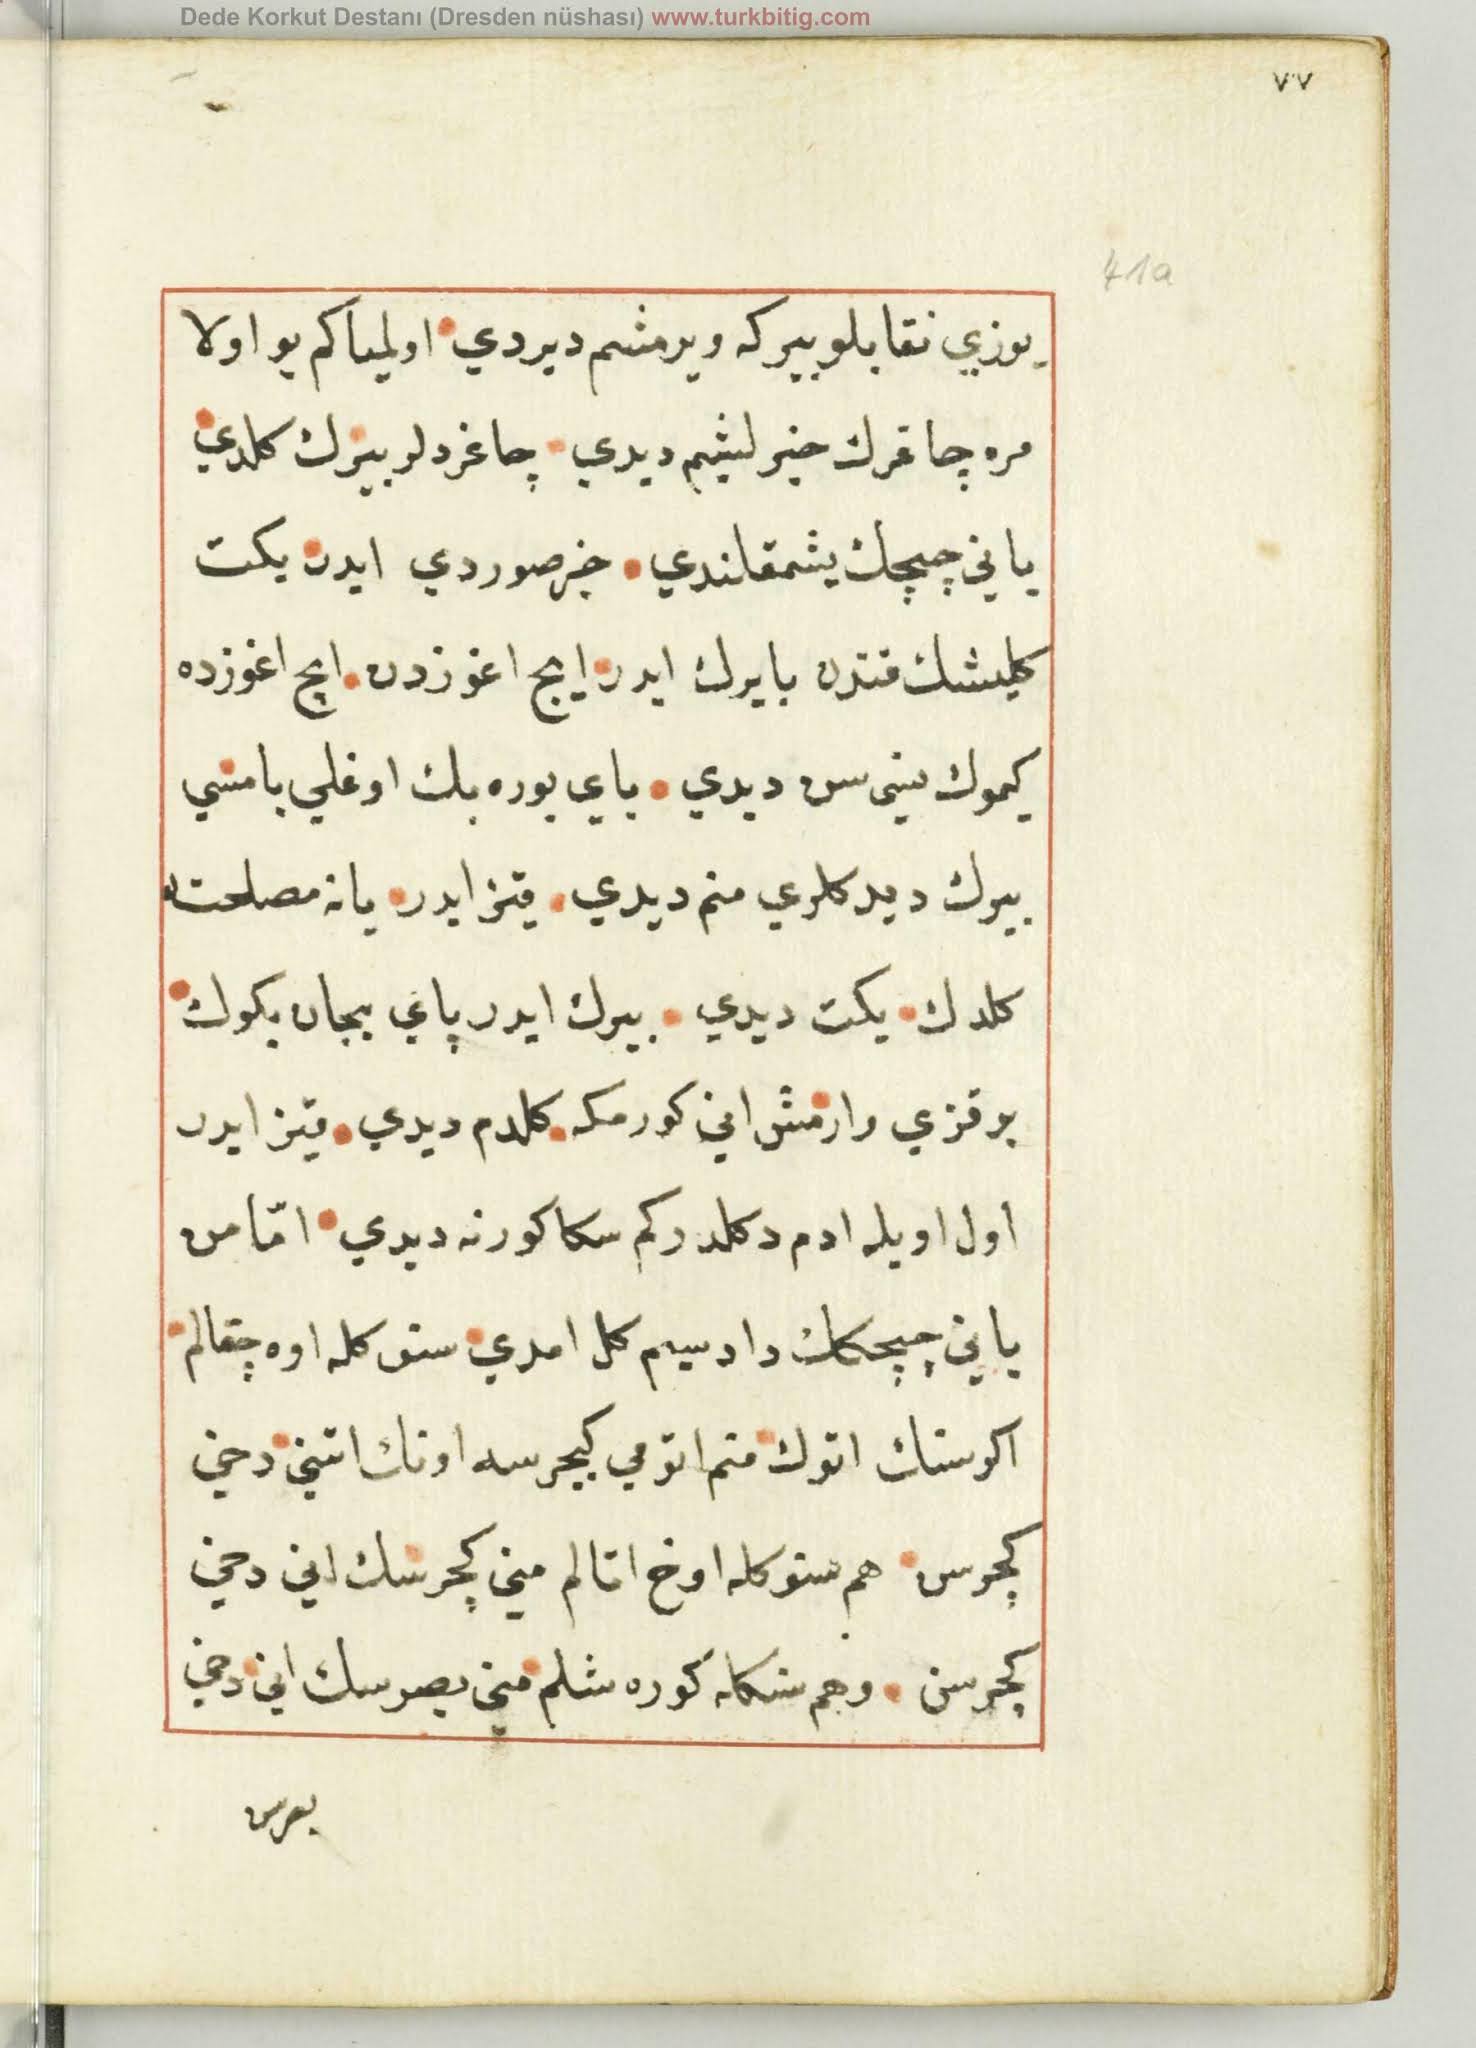 Dede Korkut Destanı (Dresden nüshası) www.turkbitig.com
٧٧
41a
يوزي نقابلو بيركه ويرمشم ديردي اولمياكم بو اولا
مره چاغرك خبرلشيم ديدي چاغردلر بيرك كلدي
باني چيچك يشمقلندي خبر صوردي ايدر يكت
كليشك قندن بايرك ايدر ايچ اغوزدن ايچ اغوزده
كيموك نينى سن ديدي باي بوره بك اوغلي بامسي
بيرك ديدكلري منم ديدي قيز ايدر يا نه مصلحته
كلدك يكت ديدي بيرك ايدر پاي بيجان بكوك
بر قزي وارمش اني كورمكه كلدم ديدي قيز ايدر
اول اويله ادم دكلدركم سكا كورنه ديدي امّا من
باني چيچكك دادسيم كل امدي سنوكله اوه چقالم
اكر سنك اتوك منم اتومي كيچرسه اونك اتيني دخي
كچرسن هم سنوكله اوخ اتالم ميني كچرسك اني دخي
كچرسن و هم سنكله كوره شلم ميني بصرسك اني دخي
بصرسن